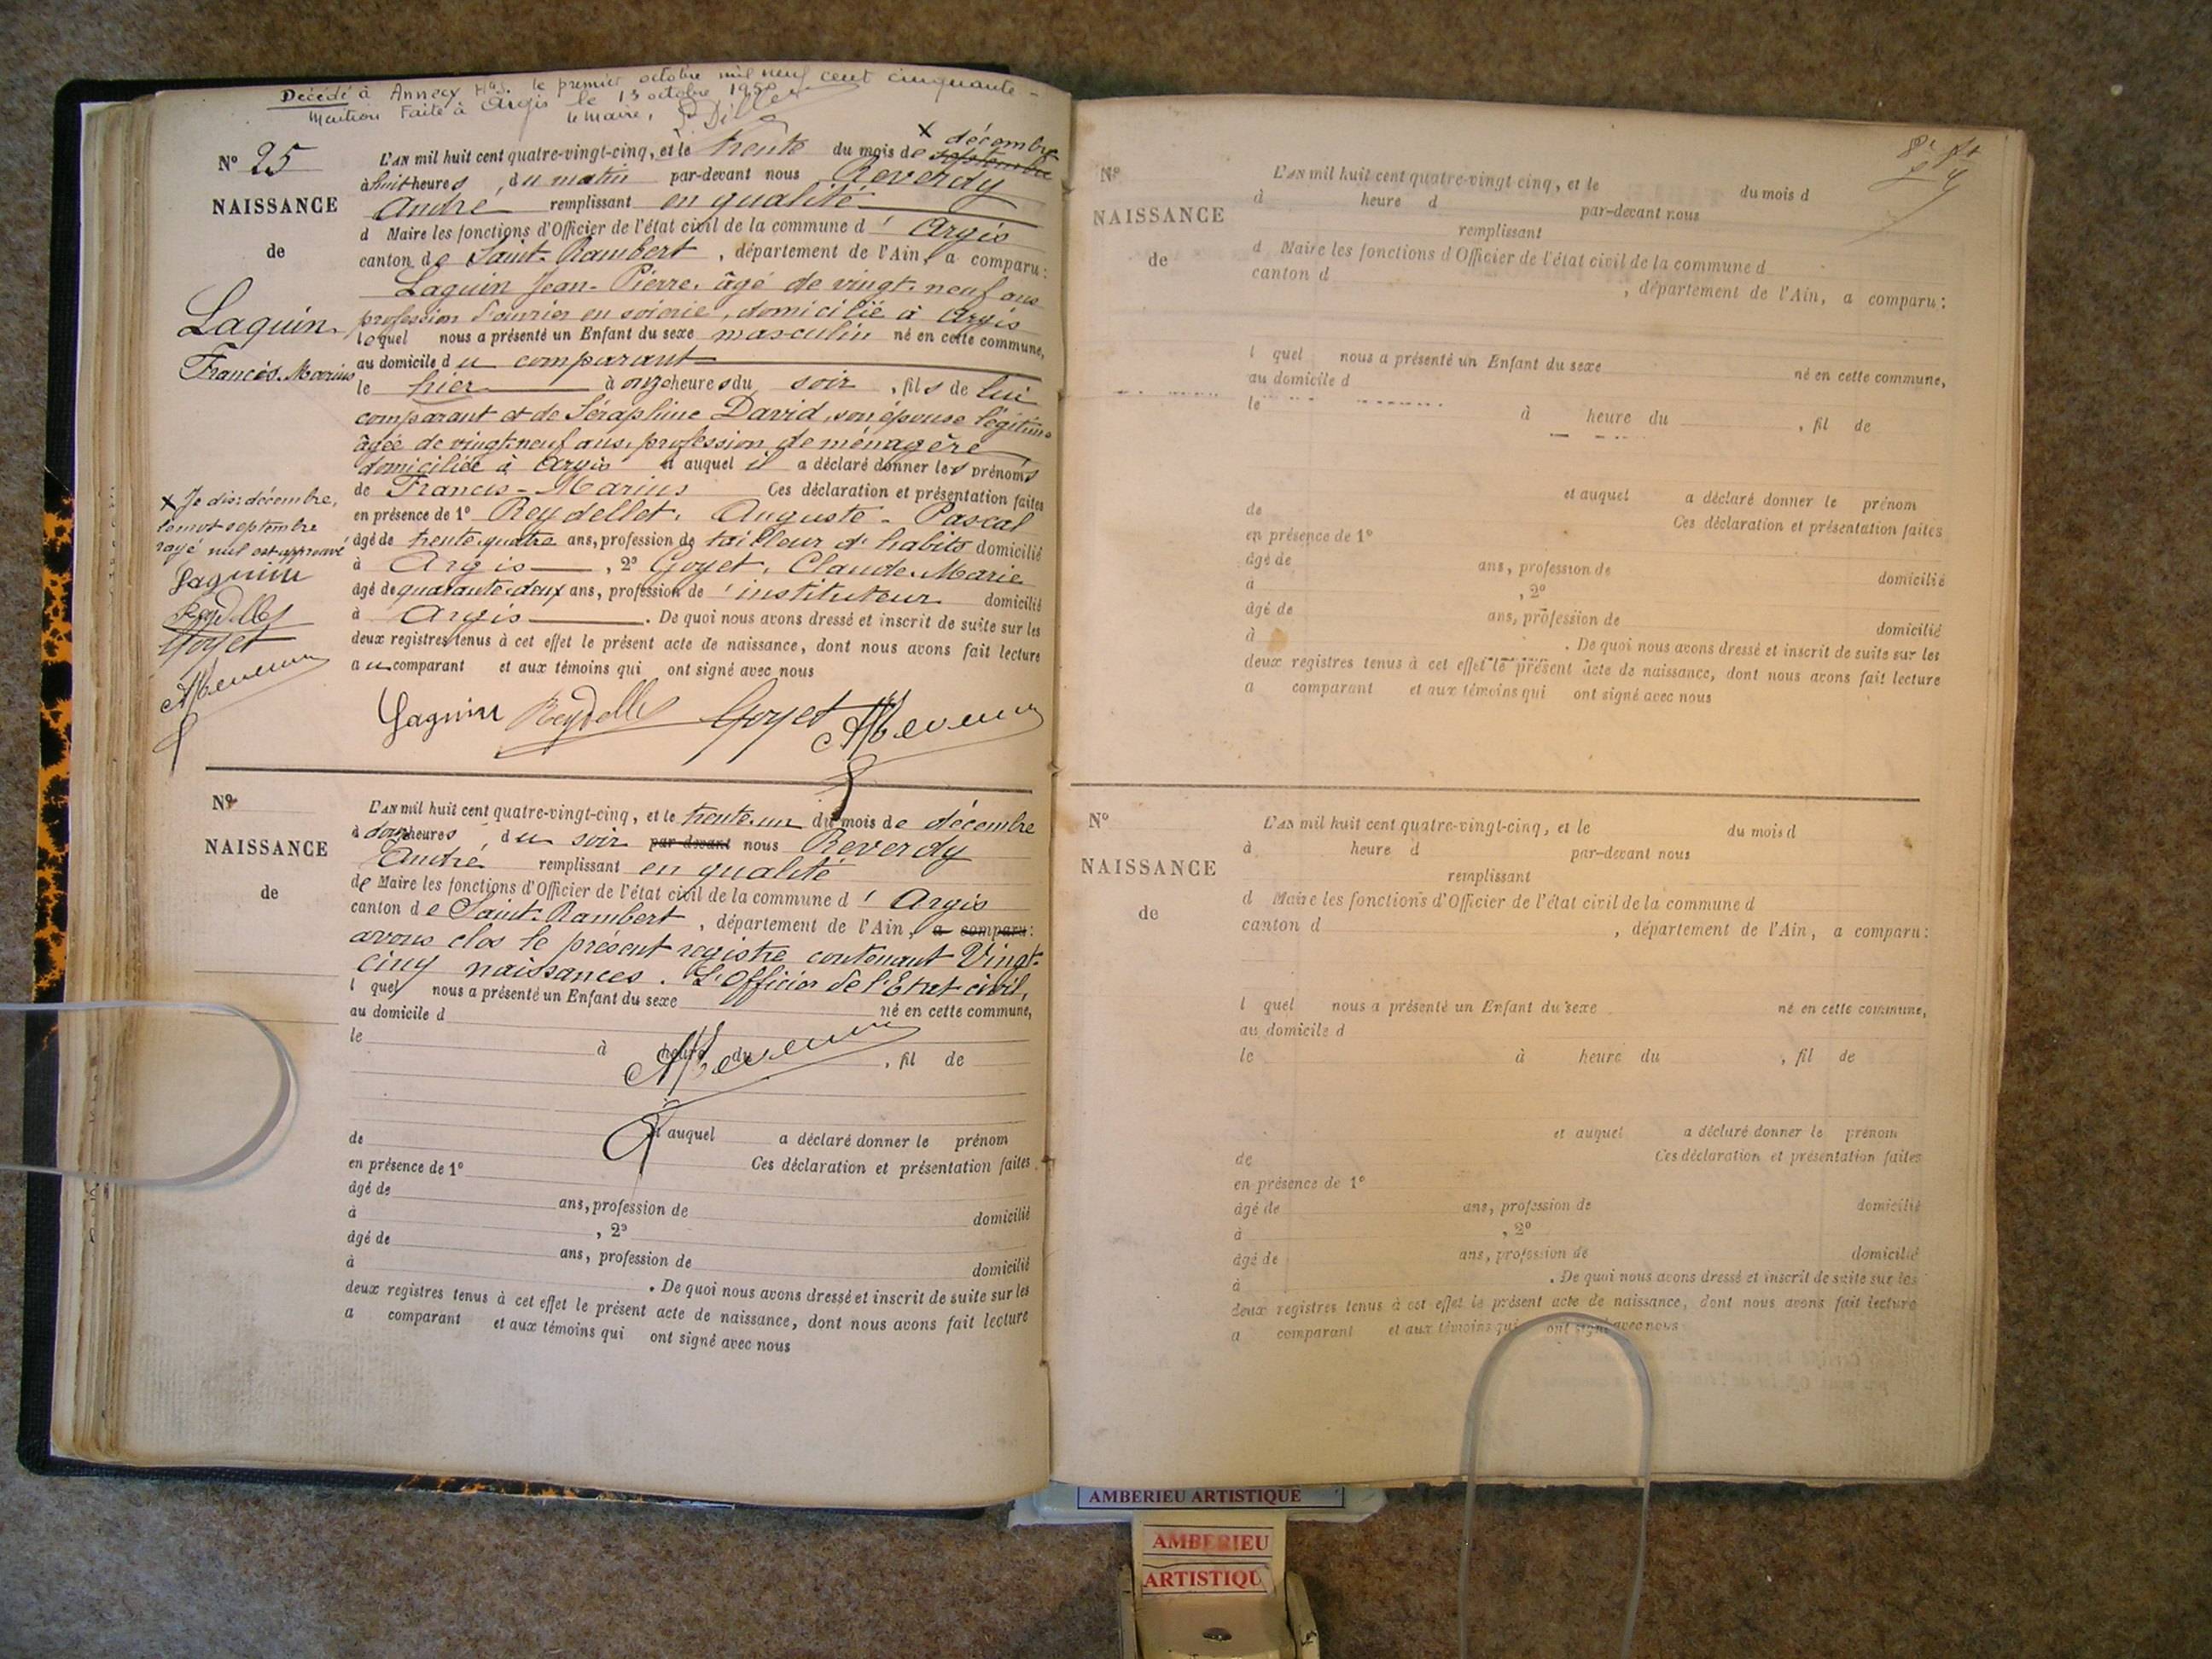 Décédé à Annecy Hte S. le premier octobre mil neuf cent cinquante -
Mention Faite à Argis le 13 octobre 1950
le maire,
N° 25
NAISSANCE
de
Laguin
Francis-Marius
L'AN mil huit cent quatre-vingt-cinq, et le trente du mois de septembre x décembre
à huit heures, du matin par-devant nous Reverdy
André remplissant en qualité
d Maire les fonctions d'Officier de l'état civil de la commune d' Argis
canton de Saint-Rambert, département de l'Ain, a comparu:
Laguin Jean-Pierre, âgé de vingt-neuf ans
profession d'ouvrier en soierie, domicilié à Argis
lequel nous a présenté un Enfant du sexe masculin né en cette commune,
au domicile du comparant
le hier à onze heures du soir, fils de lui
comparant et de Séraphine David, son épouse légitime
âgée de vingt-neuf ans, profession de ménagère
domiciliée à Argis et auquel il a déclaré donner les prénoms
de Francis-Marius Ces déclaration et présentation faites
en présence de 1° Reydellet, Auguste-Pascal
âgé de trente-quatre ans, profession de tailleur d'habits domicilié
à Argis, 2° Goyet, Claude-Marie
âgé de quarante-deux ans, profession de instituteur domicilié
à Argis. De quoi nous avons dressé et inscrit de suite sur les
deux registres tenus à cet effet le présent acte de naissance, dont nous avons fait lecture
au comparant et aux témoins qui ont signé avec nous
x Je dis: décembre,
le mot septembre
rayé nul est approuvé
Laguin
Reydellet
Goyet
Laguin Reydellet Goyet
N°
NAISSANCE
de
L'AN mil huit cent quatre-vingt-cinq, et le trente-un du mois de décembre
à douze heures du soir par-devant nous Reverdy
André remplissant en qualité
de Maire les fonctions d'Officier de l'état civil de la commune d' Argis
canton de Saint-Rambert, département de l'Ain, a comparu:
avons clos le présent registre contenant Vingt-
cinq naissances. L'Officier de l'Etat civil,
l quel nous a présenté un Enfant du sexe né en cette commune,
au domicile d
le à heure du , fil de
et auquel a déclaré donner le prénom
de Ces déclaration et présentation faites
en présence de 1°
âgé de ans, profession de domicilié
à , 2°
âgé de ans, profession de domicilié
à . De quoi nous avons dressé et inscrit de suite sur les
deux registres tenus à cet effet le présent acte de naissance, dont nous avons fait lecture
a comparant et aux témoins qui ont signé avec nous
N°
NAISSANCE
de
L'AN mil huit cent quatre-vingt-cinq, et le du mois d
à heure d par-devant nous
remplissant
d Maire les fonctions d'Officier de l'état civil de la commune d
canton d , département de l'Ain, a comparu:
l quel nous a présenté un Enfant du sexe né en cette commune,
au domicile d
le à heure du , fil de
et auquel a déclaré donner le prénom
de Ces déclaration et présentation faites
en présence de 1°
âgé de ans, profession de domicilié
à , 2°
âgé de ans, profession de domicilié
à . De quoi nous avons dressé et inscrit de suite sur les
deux registres tenus à cet effet le présent acte de naissance, dont nous avons fait lecture
a comparant et aux témoins qui ont signé avec nous
N°
NAISSANCE
de
L'AN mil huit cent quatre-vingt-cinq, et le du mois d
à heure d par-devant nous
remplissant
d Maire les fonctions d'Officier de l'état civil de la commune d
canton d , département de l'Ain, a comparu:
l quel nous a présenté un Enfant du sexe né en cette commune,
au domicile d
le à heure du , fil de
et auquel a déclaré donner le prénom
de Ces déclaration et présentation faites
en présence de 1°
âgé de ans, profession de domicilié
à , 2°
âgé de ans, profession de domicilié
à . De quoi nous avons dressé et inscrit de suite sur les
deux registres tenus à cet effet le présent acte de naissance, dont nous avons fait lecture
a comparant et aux témoins qui ont signé avec nous
AMBERIEU ARTISTIQUE
AMBERIEU
ARTISTIQU